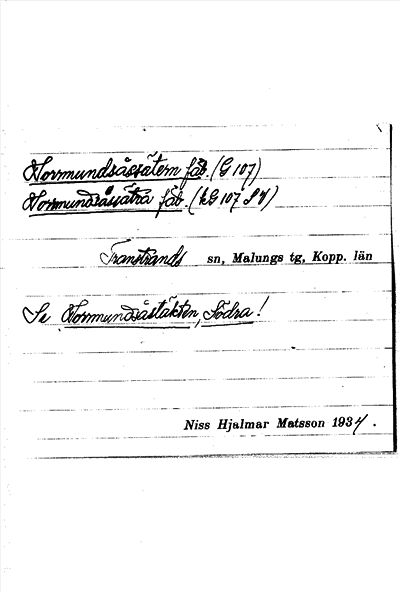 Horrmundsåssätern fäb. (G 107)
Horrmundsåssätra fäb. (kG 107 SV)
Transtrands sn, Malungs tg, Kopp. län
Se Horrmundsåstäkten, Södra!
Niss Hjalmar Matsson 1934.